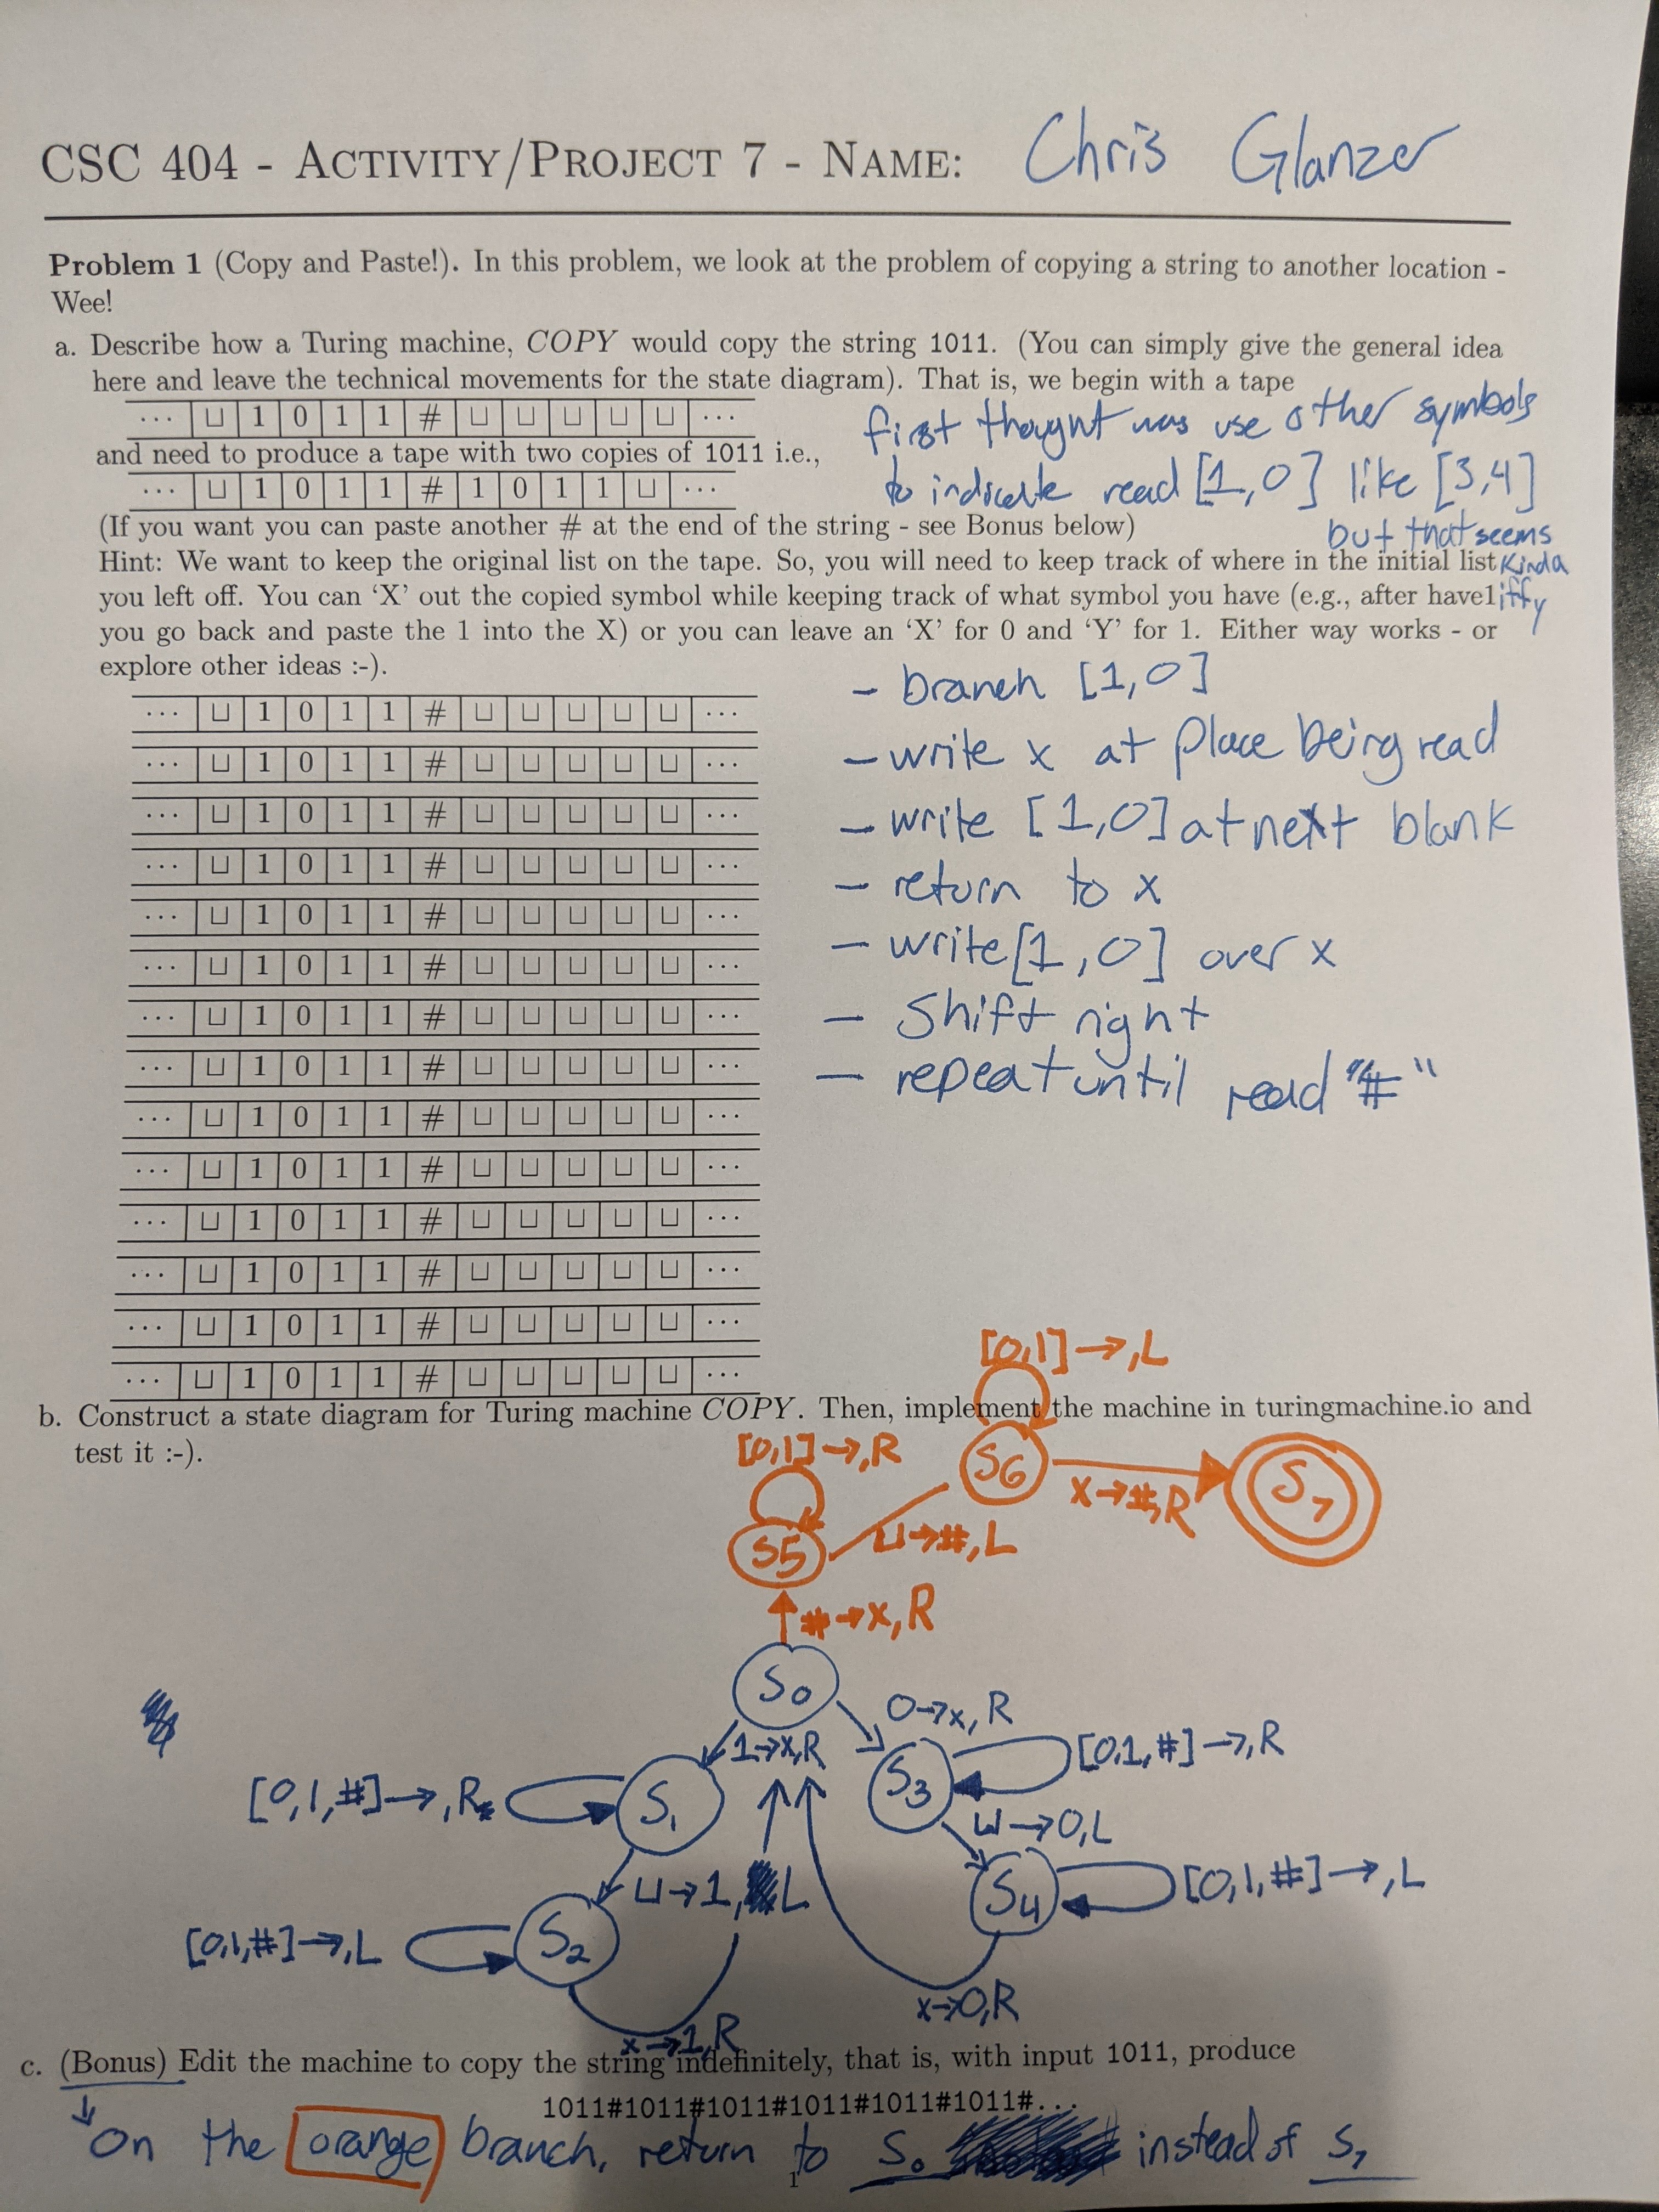 CSC 404 - ACTIVITY/PROJECT 7 - NAME: Chris Glanzer
Problem 1 (Copy and Paste!). In this problem, we look at the problem of copying a string to another location -
Wee!
a. Describe how a Turing machine, COPY would copy the string 1011. (You can simply give the general idea
here and leave the technical movements for the state diagram). That is, we begin with a tape
··· ⊔ 1 0 1 1 # ⊔ ⊔ ⊔ ⊔ ⊔ ···
and need to produce a tape with two copies of 1011 i.e.,
··· ⊔ 1 0 1 1 # 1 0 1 1 ⊔ ···
first thought was use other symbols
to indicate read [1,0] like [3,4]
but that seems
kinda
iffy
(If you want you can paste another # at the end of the string - see Bonus below)
Hint: We want to keep the original list on the tape. So, you will need to keep track of where in the initial list
you left off. You can 'X' out the copied symbol while keeping track of what symbol you have (e.g., after have1
you go back and paste the 1 into the X) or you can leave an 'X' for 0 and 'Y' for 1. Either way works - or
explore other ideas :-).
··· ⊔ 1 0 1 1 # ⊔ ⊔ ⊔ ⊔ ⊔ ···
··· ⊔ 1 0 1 1 # ⊔ ⊔ ⊔ ⊔ ⊔ ···
··· ⊔ 1 0 1 1 # ⊔ ⊔ ⊔ ⊔ ⊔ ···
··· ⊔ 1 0 1 1 # ⊔ ⊔ ⊔ ⊔ ⊔ ···
··· ⊔ 1 0 1 1 # ⊔ ⊔ ⊔ ⊔ ⊔ ···
··· ⊔ 1 0 1 1 # ⊔ ⊔ ⊔ ⊔ ⊔ ···
··· ⊔ 1 0 1 1 # ⊔ ⊔ ⊔ ⊔ ⊔ ···
··· ⊔ 1 0 1 1 # ⊔ ⊔ ⊔ ⊔ ⊔ ···
··· ⊔ 1 0 1 1 # ⊔ ⊔ ⊔ ⊔ ⊔ ···
··· ⊔ 1 0 1 1 # ⊔ ⊔ ⊔ ⊔ ⊔ ···
··· ⊔ 1 0 1 1 # ⊔ ⊔ ⊔ ⊔ ⊔ ···
··· ⊔ 1 0 1 1 # ⊔ ⊔ ⊔ ⊔ ⊔ ···
··· ⊔ 1 0 1 1 # ⊔ ⊔ ⊔ ⊔ ⊔ ···
··· ⊔ 1 0 1 1 # ⊔ ⊔ ⊔ ⊔ ⊔ ···
- branch [1,0]
- write x at place being read
- write [1,0] at next blank
- return to x
- write [1,0] over x
- Shift right
- repeat until read "#"
b. Construct a state diagram for Turing machine COPY. Then, implement the machine in turingmachine.io and
test it :-).
[0,1]→,L
[0,1]→,R
S6
X→#,R
S7
S5
⊔→#,L
#→x,R
S0
0→x,R
1→x,R
[0,1,#]→,R
S3
[0,1,#]→,R
S1
⊔→0,L
⊔→1,L
S4
[0,1,#]→,L
[0,1,#]→,L
S2
x→0,R
x→1,R
c. (Bonus) Edit the machine to copy the string indefinitely, that is, with input 1011, produce
1011#1011#1011#1011#1011#1011#...
↳ On the orange branch, return to S0 instead of S7
1